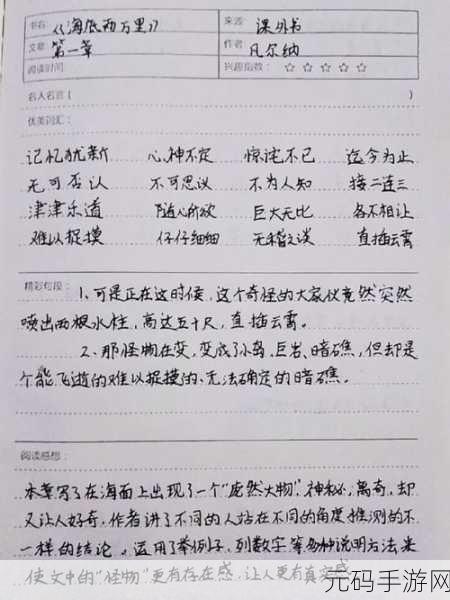 书名 《海底两万里》 来源 课外书
文章 第一章 作者 凡尔纳
阅读时间 兴趣指数: ☆ ☆ ☆ ☆ ☆
名人名言 ( )
优美词汇:
记忆犹新 心神不定 惊诧不已 迄今为止
无可否认 不可思议 不为人知 接二连三
津津乐道 随心所欲 巨大无比 各不相让
难以捉摸 仔仔细细 无稽之谈 直插云霄
精彩句段: 1、可是正在这时侯,这个奇怪的大家伙竟然突然
喷出两根水柱,高达五十尺,直插云霄。
2、那怪物在变,变成了小岛、巨岩、暗礁,但却是
个能飞逝的难以捉摸的、无法确定的暗礁。
阅读感想:
本章写了在海面上出现了一个“庞然大物”,神秘,离奇,却
又让人好奇,作者讲了不同的人站在不同的角度推测的不
一样的结论。运用了举例子,列数字等多种说明方法来
使文中的“怪物”更有存在感,让人更有真实感
元码手游网